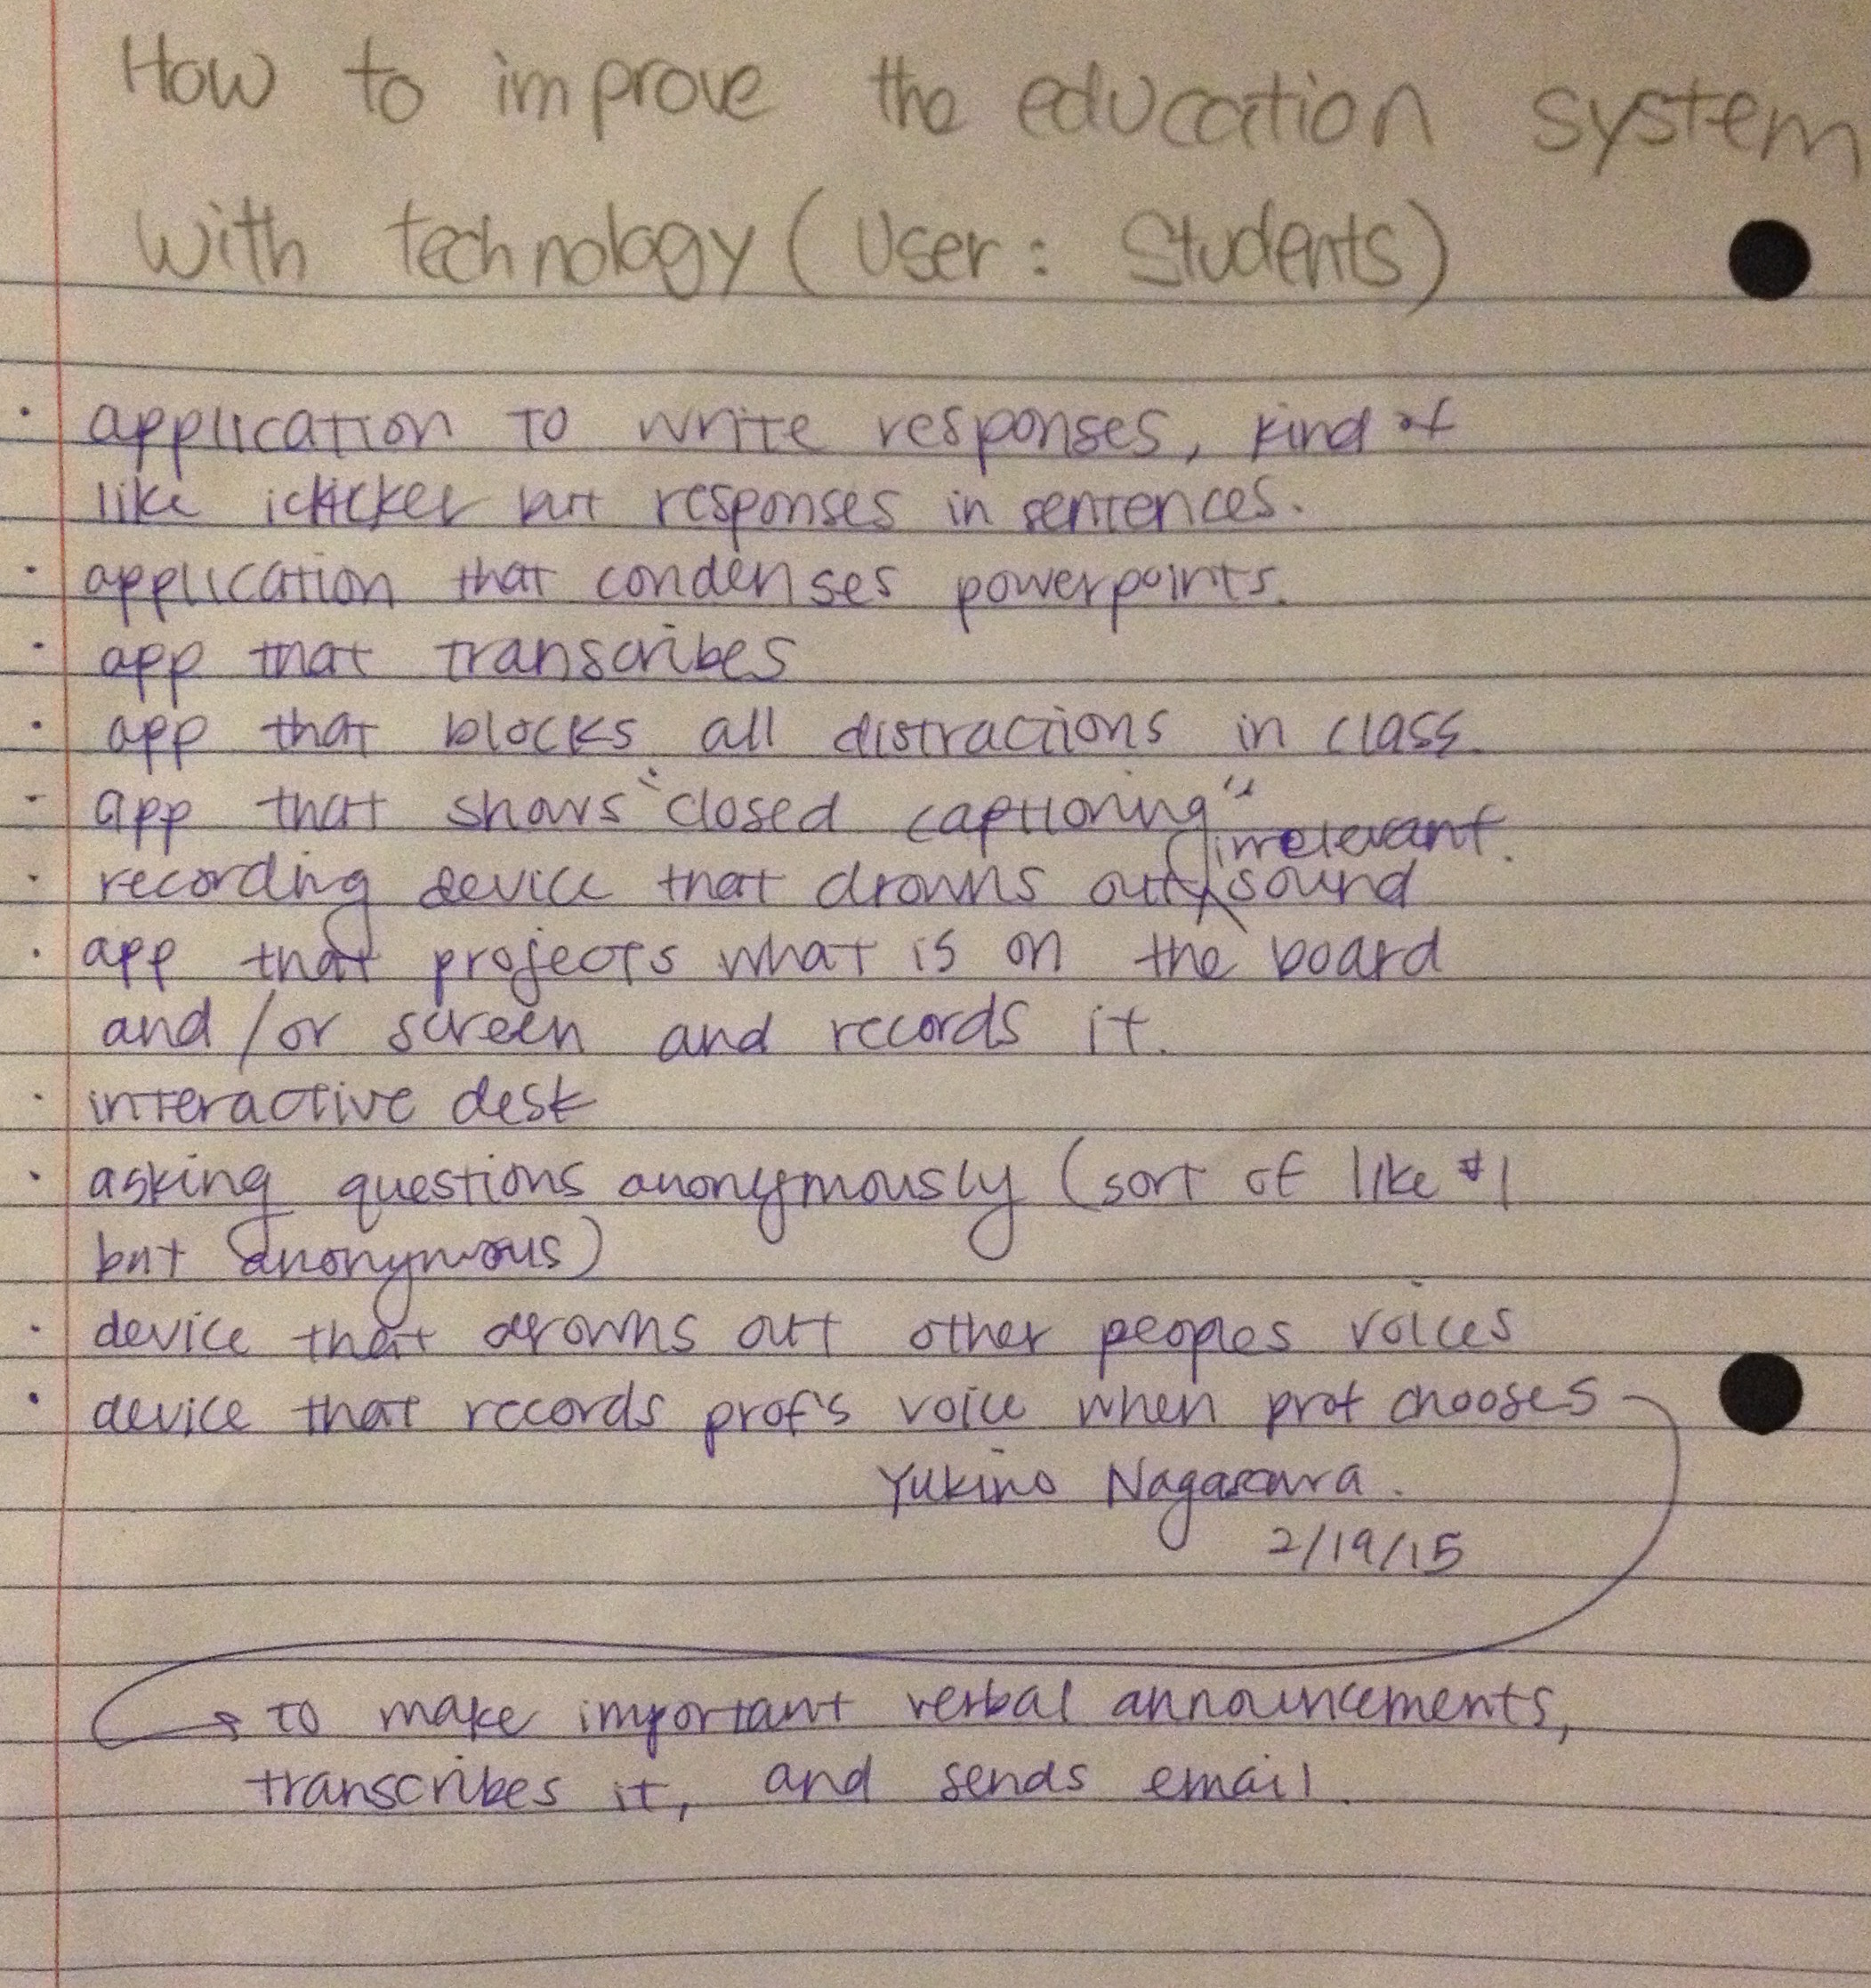 How to improve the education system
with technology (User: Students)
· application to write responses, kind of
like iclicker but responses in sentences.
· application that condenses powerpoints.
· app that transcribes
· app that blocks all distractions in class.
- app that shows "closed captioning"
irrelevant.
· recording device that drowns out sound
· app that projects what is on the board
and/or screen and records it.
· interactive desk
· asking questions anonymously (sort of like #1
but anonymous)
· device that drowns out other peoples voices
· device that records prof's voice when prof chooses
Yukino Nagasawa.
2/19/15
→ to make important verbal announcements,
transcribes it, and sends email.